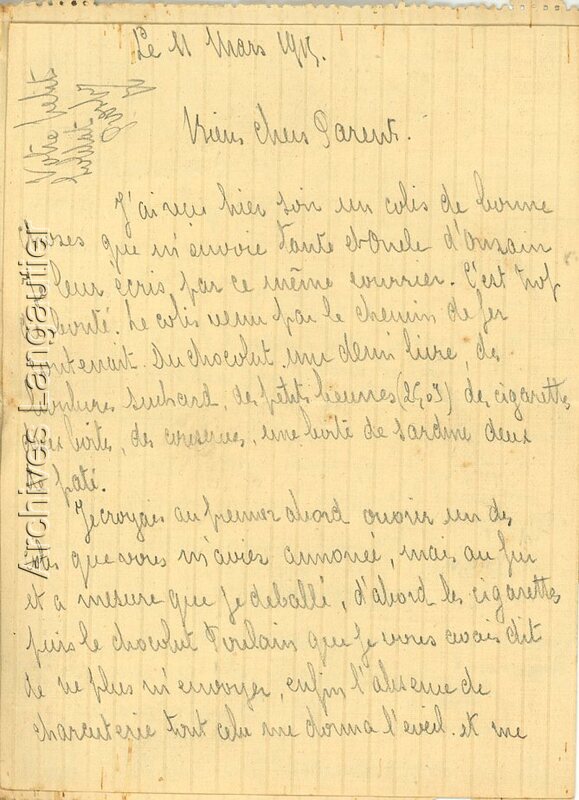 Le 11 Mars 1915.
Votre petit
soldat
Bien chers Parents.
J'ai reçu hier soir un colis de bonne
choses que m'envoie Tante et Oncle d'Onzain
leur écris par ce même courrier. C'est trop
bonté. Le colis venu par le chemin de fer
contenait. Du chocolat une demi livre, des
Suchard, des petits beurres (25,03) des cigarettes
boites, des conserves, une boite de sardine deux
paté.
Je croyais au premier abord ouvrir un des
que vous m'avies annoncé, mais au fur
et a mesure que je deballé, d'abord les cigarettes
puis le chocolat Poulain que je vous avais dit
de ne plus m'envoyer, enfin l'absence de
charcuterie tout cela me donna l'eveil. et me
Archives Langautier